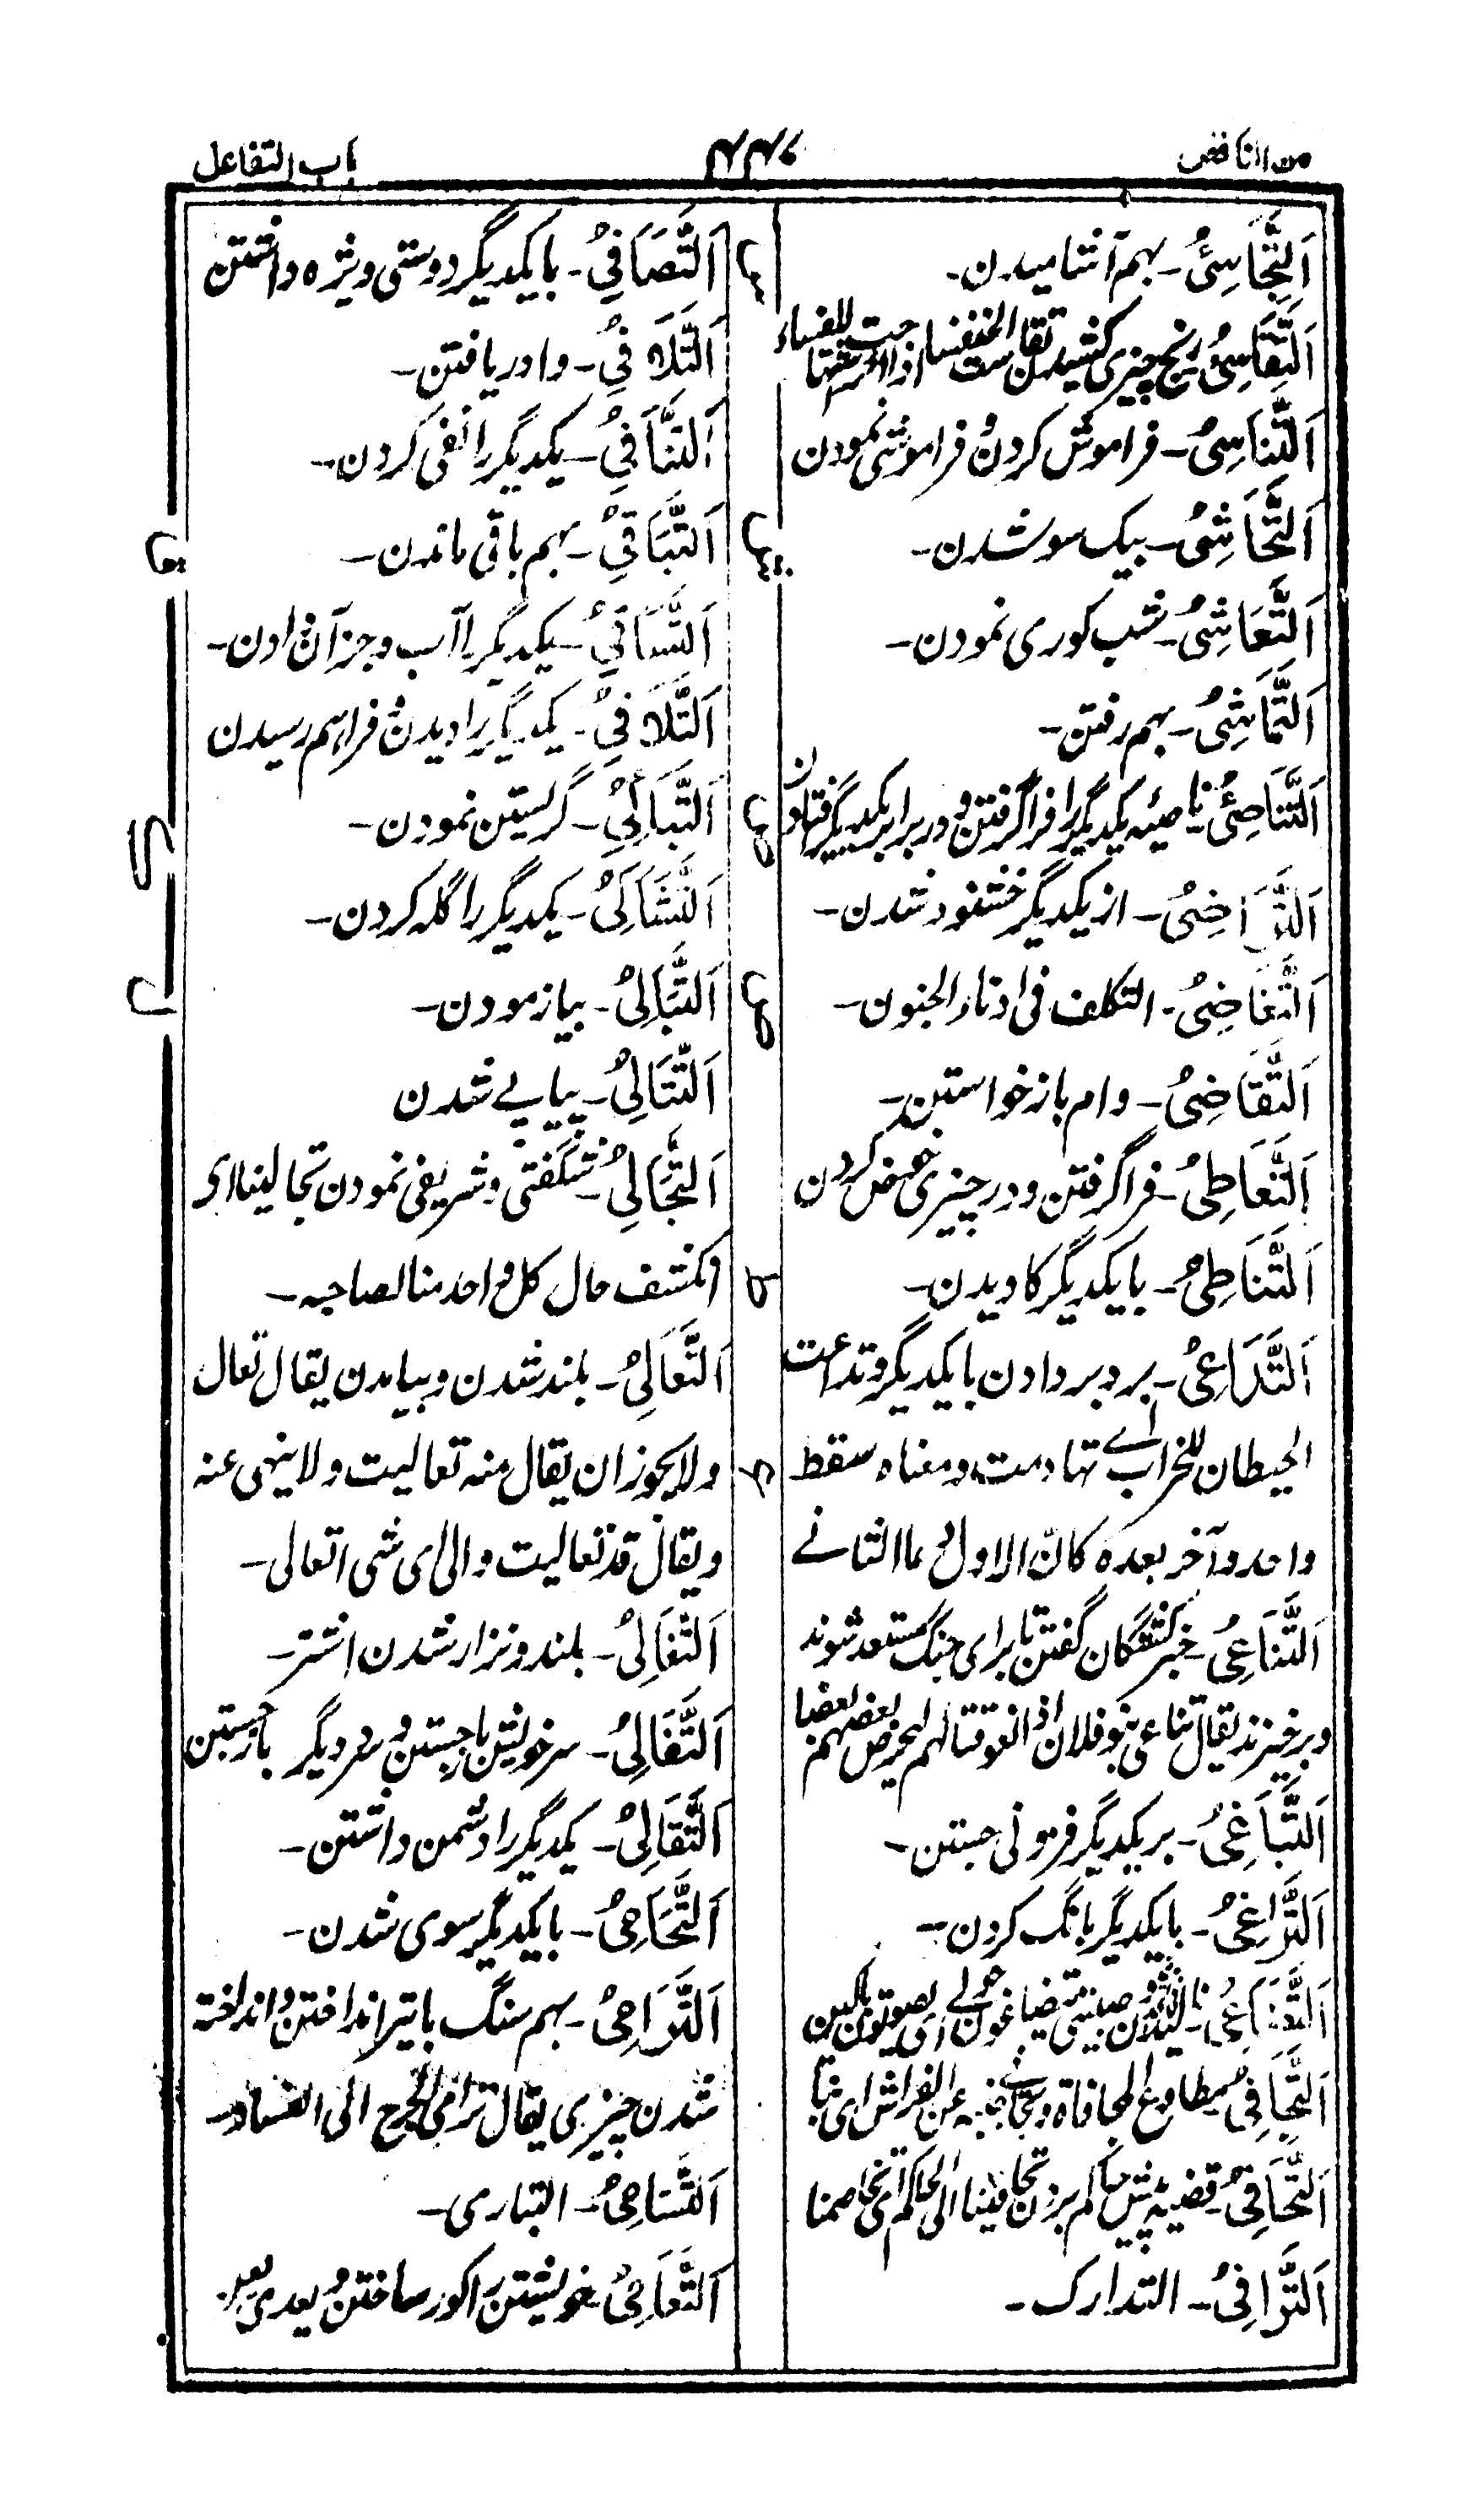 من الناقص
باب التفاعل
اَلتَّحَاسِیُ ـ بہم آشامیدن ـ
اَلتَّقَاسِیُ رنج چیزی کشیدن
اَلتَّنَاسِیُ ـ فراموش کردن و فراموشی نمودن
س
اَلتَّحَاشِیُ ـ بیک سو شدن ـ
ش
اَلتَّعَاشِیُ ـ شب کوری نمودن ـ
اَلتَّمَاشِیُ ـ بہم رفتن ـ
اَلتَّنَاصِیُ ناصیہ یکدیگر را فرا گرفتن و در برابر یکدیگر افتادن
ص
اَلتَّرَاضِیُ ـ از یکدیگر خشنود شدن ـ
اَلتَّغَاضِیُ ـ التکلف فی ادناء الجفون ـ
ض
اَلتَّقَاضِیُ ـ وام باز خواستن ـ
اَلتَّعَاطِیُ ـ فرا گرفتن و در چیزی خوض کردن
اَلتَّنَاطِیُ ـ با یکدیگر کاویدن ـ
ط
اَلتَّدَاعِیُ ـ بر دبر دادن با یکدیگر و تداعت
الحیطان للخراب اے تهادمت و معناه سقط
ع
واحد و آخر بعده کان الاول دعا الثانے
اَلتَّنَاعِیُ ـ خبر کشتگان گفتن تا برای جنگ مستعد شوند
و برخیزند یقال تناعی بنو فلان اذا نعوا قتلاهم لیحرض بعضهم بعضا
اَلتَّبَاغِیُ ـ بر یکدیگر فزونی جستن ـ
اَلتَّرَاغِیُ ـ با یکدیگر بانگ کردن ـ
اَلتَّضَاغِیُ ـ نالیدن
اَلتَّجَافِیُ مطاوع المجافاة و تجافی جنبه عن الفراش ای نبا
اَلتَّحَافِیُ ـ قضیه پیش حاکم بردن تحافینا الی الحاکم ای تخاصمنا
اَلتَّرَافِیُ ـ التدارک ـ
اَلتَّصَافِیُ ـ با یکدیگر دوستی ویژه داشتن
اَلتَّلَافِیُ ـ وا دریافتن ـ
اَلتَّنَافِیُ ـ یکدیگر را نفی کردن ـ
اَلتَّبَاقِیُ ـ بہم باقی ماندن ـ
ق
اَلتَّسَاقِیُ ـ یکدیگر را آب و جز آن دادن ـ
اَلتَّلَاقِیُ ـ یکدیگر را دیدن و فراهم رسیدن
اَلتَّبَاکِیُ ـ گریستن نمودن ـ
ک
اَلتَّشَاکِیُ ـ یکدیگر را گله کردن ـ
اَلتَّبَالِیُ ـ بیازمودن ـ
ل
اَلتَّتَالِیُ ـ پیاپے شدن
اَلتَّجَالِیُ ـ شگفتی و شریفی نمودن تجالینا ای
انکشف حال کل واحد منا لصاحبه ـ
اَلتَّعَالِیُ ـ بلند شدن و بیامدن یقال تعال
ولا یجوز ان یقال منه تعالیت ولا ینهی عنه
ویقال قد تعالیت والی ای شی اتعالی ـ
اَلتَّغَالِیُ ـ بلند و نزار شدن اشتر ـ
اَلتَّفَالِیُ ـ سر خویش را جستن و سر دیگر باز جستن
اَلتَّقَالِیُ ـ یکدیگر را دشمن داشتن ـ
اَلتَّحَامِیُ ـ با یکدیگر سوی شدن ـ
اَلتَّرَامِیُ ـ بہم سنگ یا تیر انداختن و انداخته
شدن چیزی یقال ترامی الجرح الی الفساد ـ
اَلتَّسَامِیُ ـ التباری ـ
اَلتَّعَامِیُ ـ خویشتن را کور ساختن و یعدی بعن